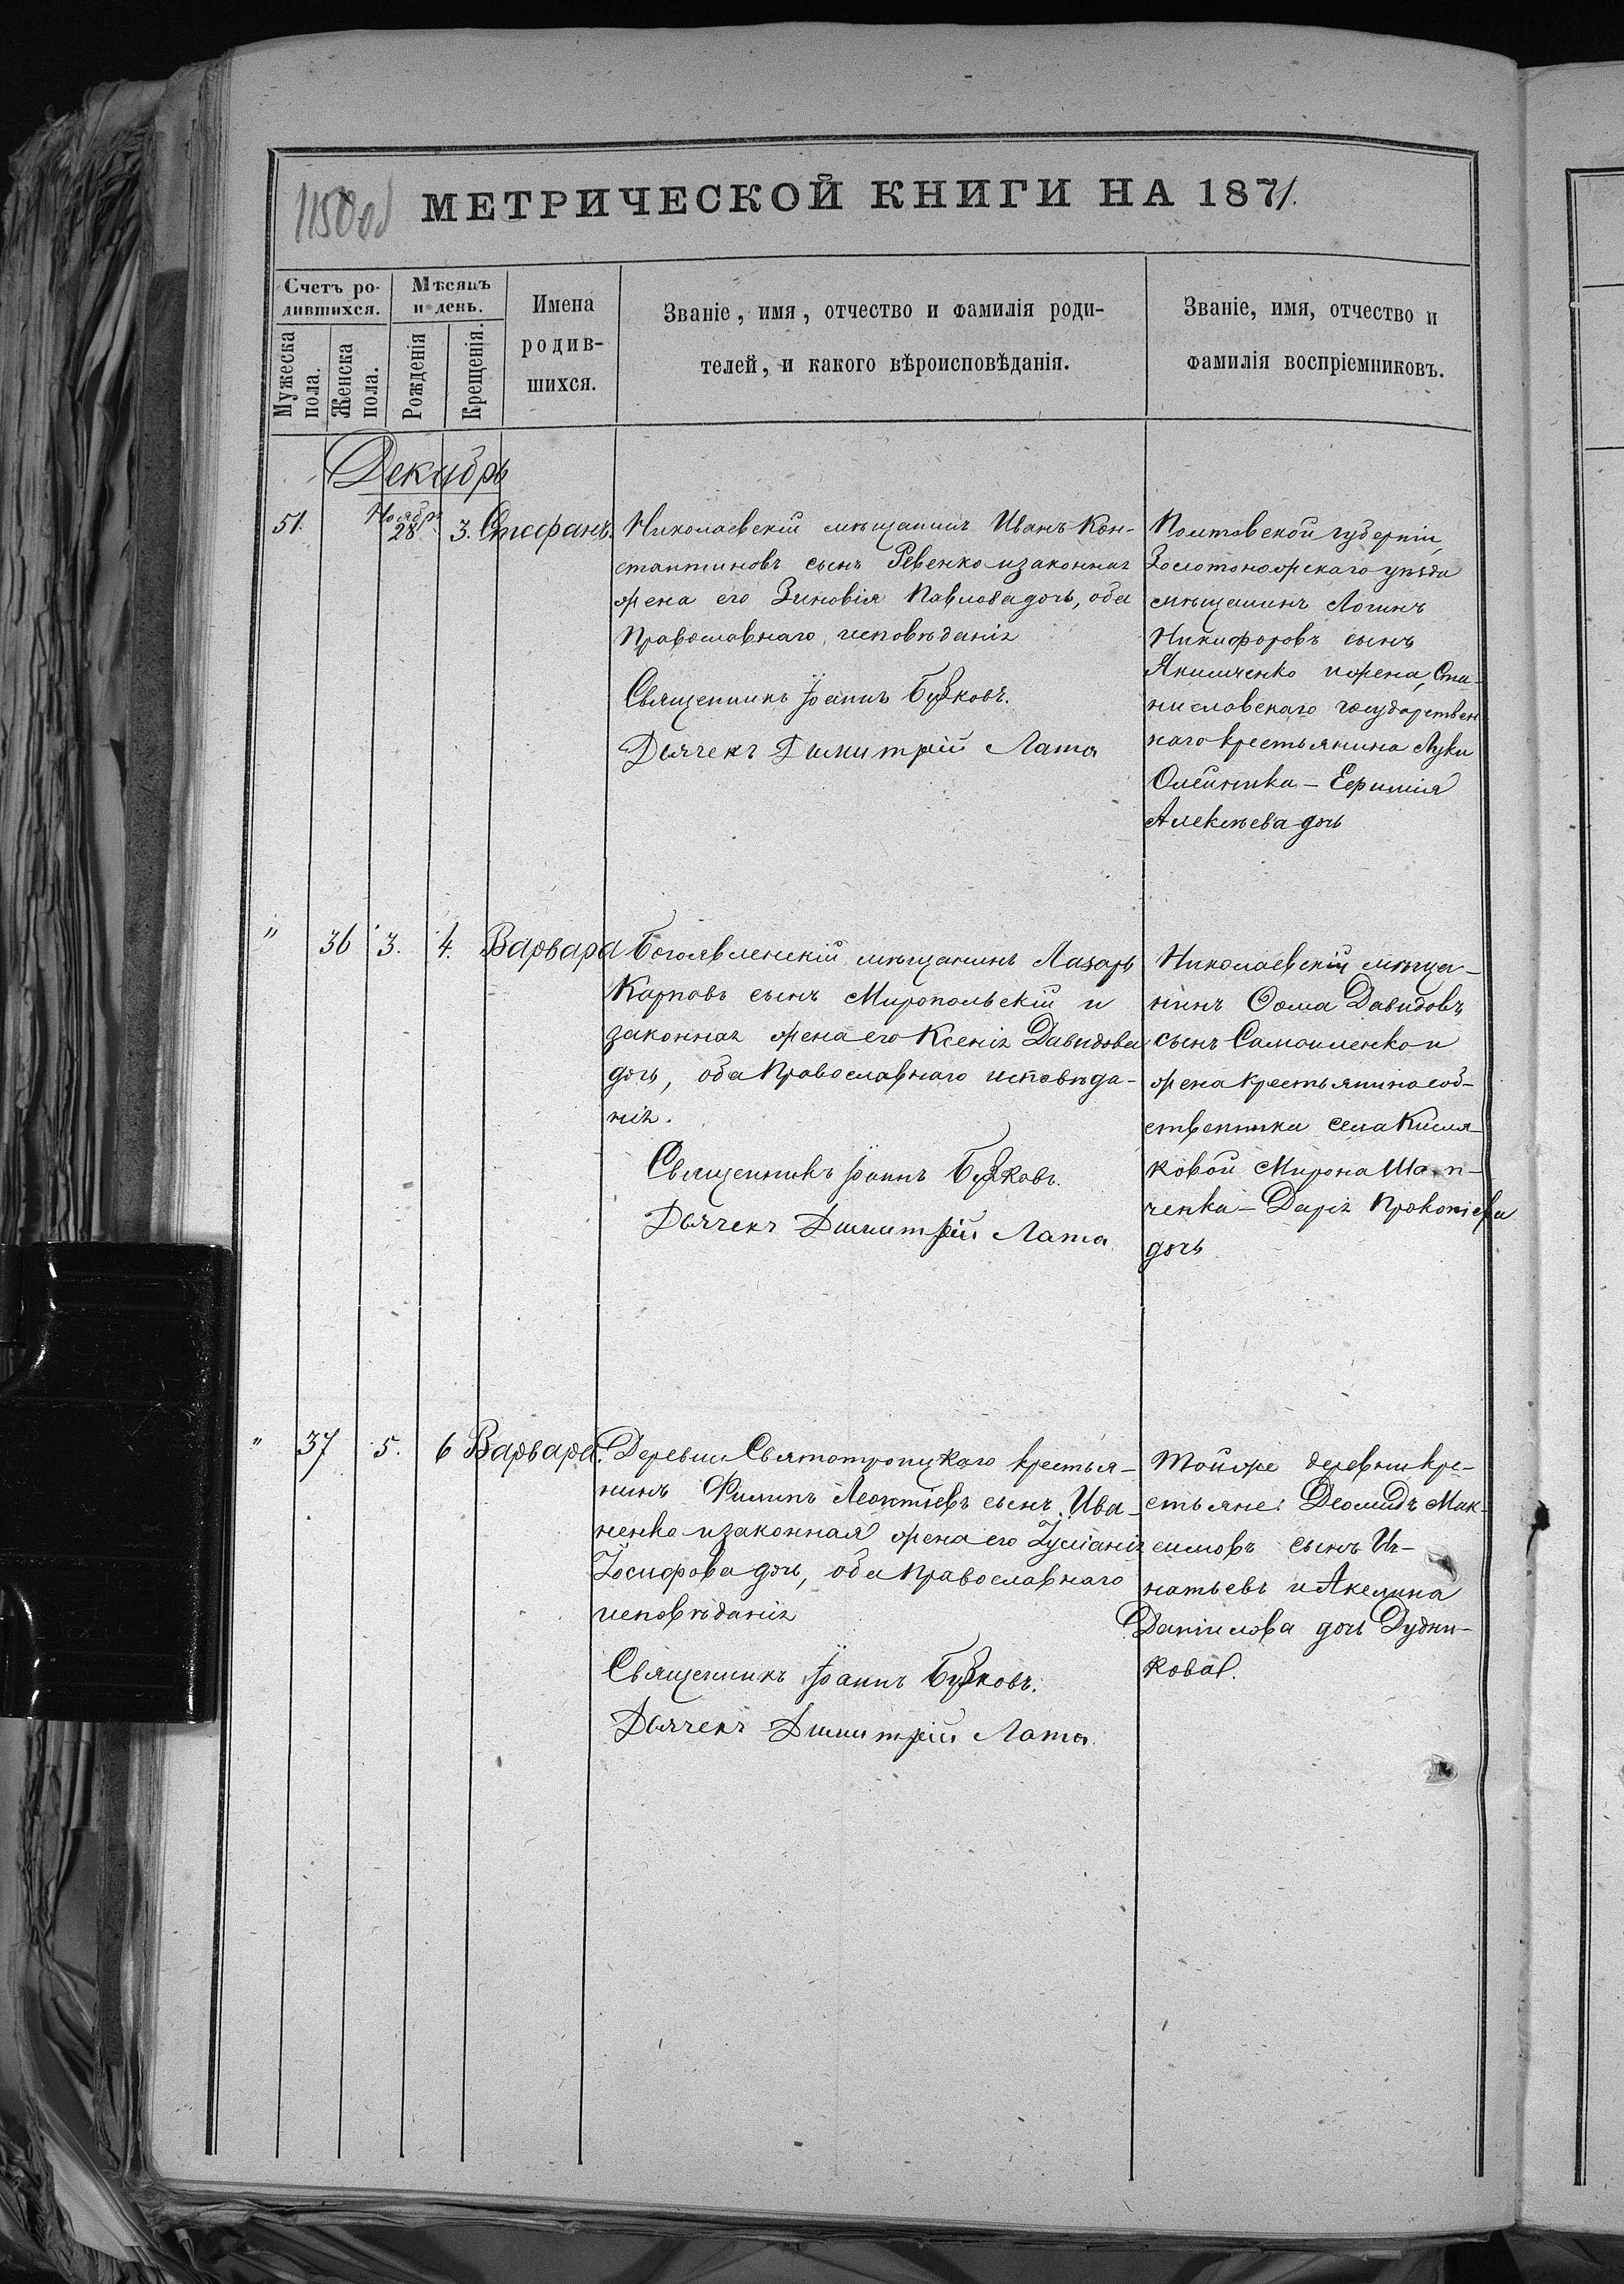 1150 об
МЕТРИЧЕСКОЙ КНИГИ НА 1871.
Счетъ ро-
дившихся.
Мужеска
пола.
Женска
пола.
Мѣсяцъ
и день.
Рожденія
Крещенія.
Имена
родив-
шихся.
Званіе, имя, отчество и фамилія роди-
телей, и какого вѣроисповѣданія.
Званіе, имя, отчество и
фамилія воспріемниковъ.
Декабрь
51.
Ноябр.
28
3.
Стефанъ.
Николаевскій мѣщанинъ Иванъ Кон-
стантиновъ сынъ Ревенко и законная
жена его Зиновія Павлова дочь, оба
Православнаго исповѣданія
Священникъ Іоаннъ Бужковъ.
Дьячекъ Димитрій Лата
Полтавской губерніи,
Золотоношскаго уѣзда
мѣщанинъ Логинъ
Никифоровъ сынъ
Якимченко и жена, Ста-
ниславскаго государствен
наго крестьянина Луки
Олейника - Ефимія
Алексѣева дочь
" 36 3. 4. Варвара
Богоявленскій мѣщанинъ Лазарь
Карповъ сынъ Миропольскій и
законная жена его Ксенія Давидова
дочь, оба Православнаго исповѣда-
нія.
Священникъ Іоаннъ Бужковъ.
Дьячекъ Димитрій Лата
Николаевскій мѣща-
нинъ Ѳома Давидовъ
сынъ Самоиленко и
жена крестьянина соб-
ственника села Кисля-
ковой Мирона
ченка - Дарія Прокопіева
дочь
" 37 5. 6 Варвара.
Деревни Святотроицкаго крестья-
нинъ Филипъ Леонтіевъ сынъ Ива-
ненко и законная жена его Іуліанія
Іосифова дочь, оба Православнаго
исповѣданія
Священникъ Іоаннъ Бужковъ.
Дьячекъ Димитрій Лата.
Той же деревни кре-
стьяне: Деомидъ Мак-
симовъ сынъ Иг-
натьевъ и Акелина
Даніилова дочь Дудни-
кова.